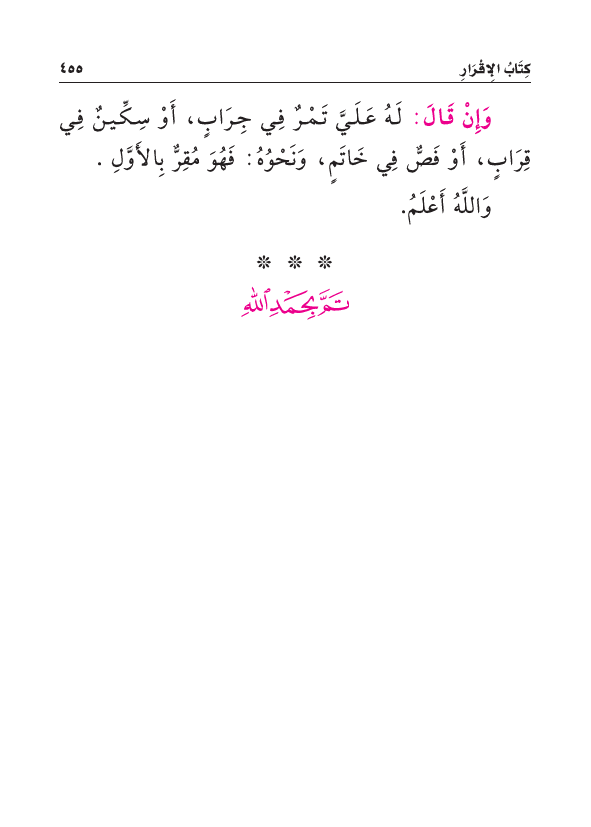 كِتَابُ الإِقْرَارِ ٤٥٥
وَإِنْ قَالَ: لَهُ عَلَيَّ تَمْرٌ فِي جِرَابٍ، أَوْ سِكِّينٌ فِي
قِرَابٍ، أَوْ فَصٌّ فِي خَاتَمٍ، وَنَحْوُهُ: فَهُوَ مُقِرٌّ بِالأَوَّلِ .
وَاللَّهُ أَعْلَمُ.
❊ ❊ ❊
تَمَّ بِحَمْدِ اللهِ